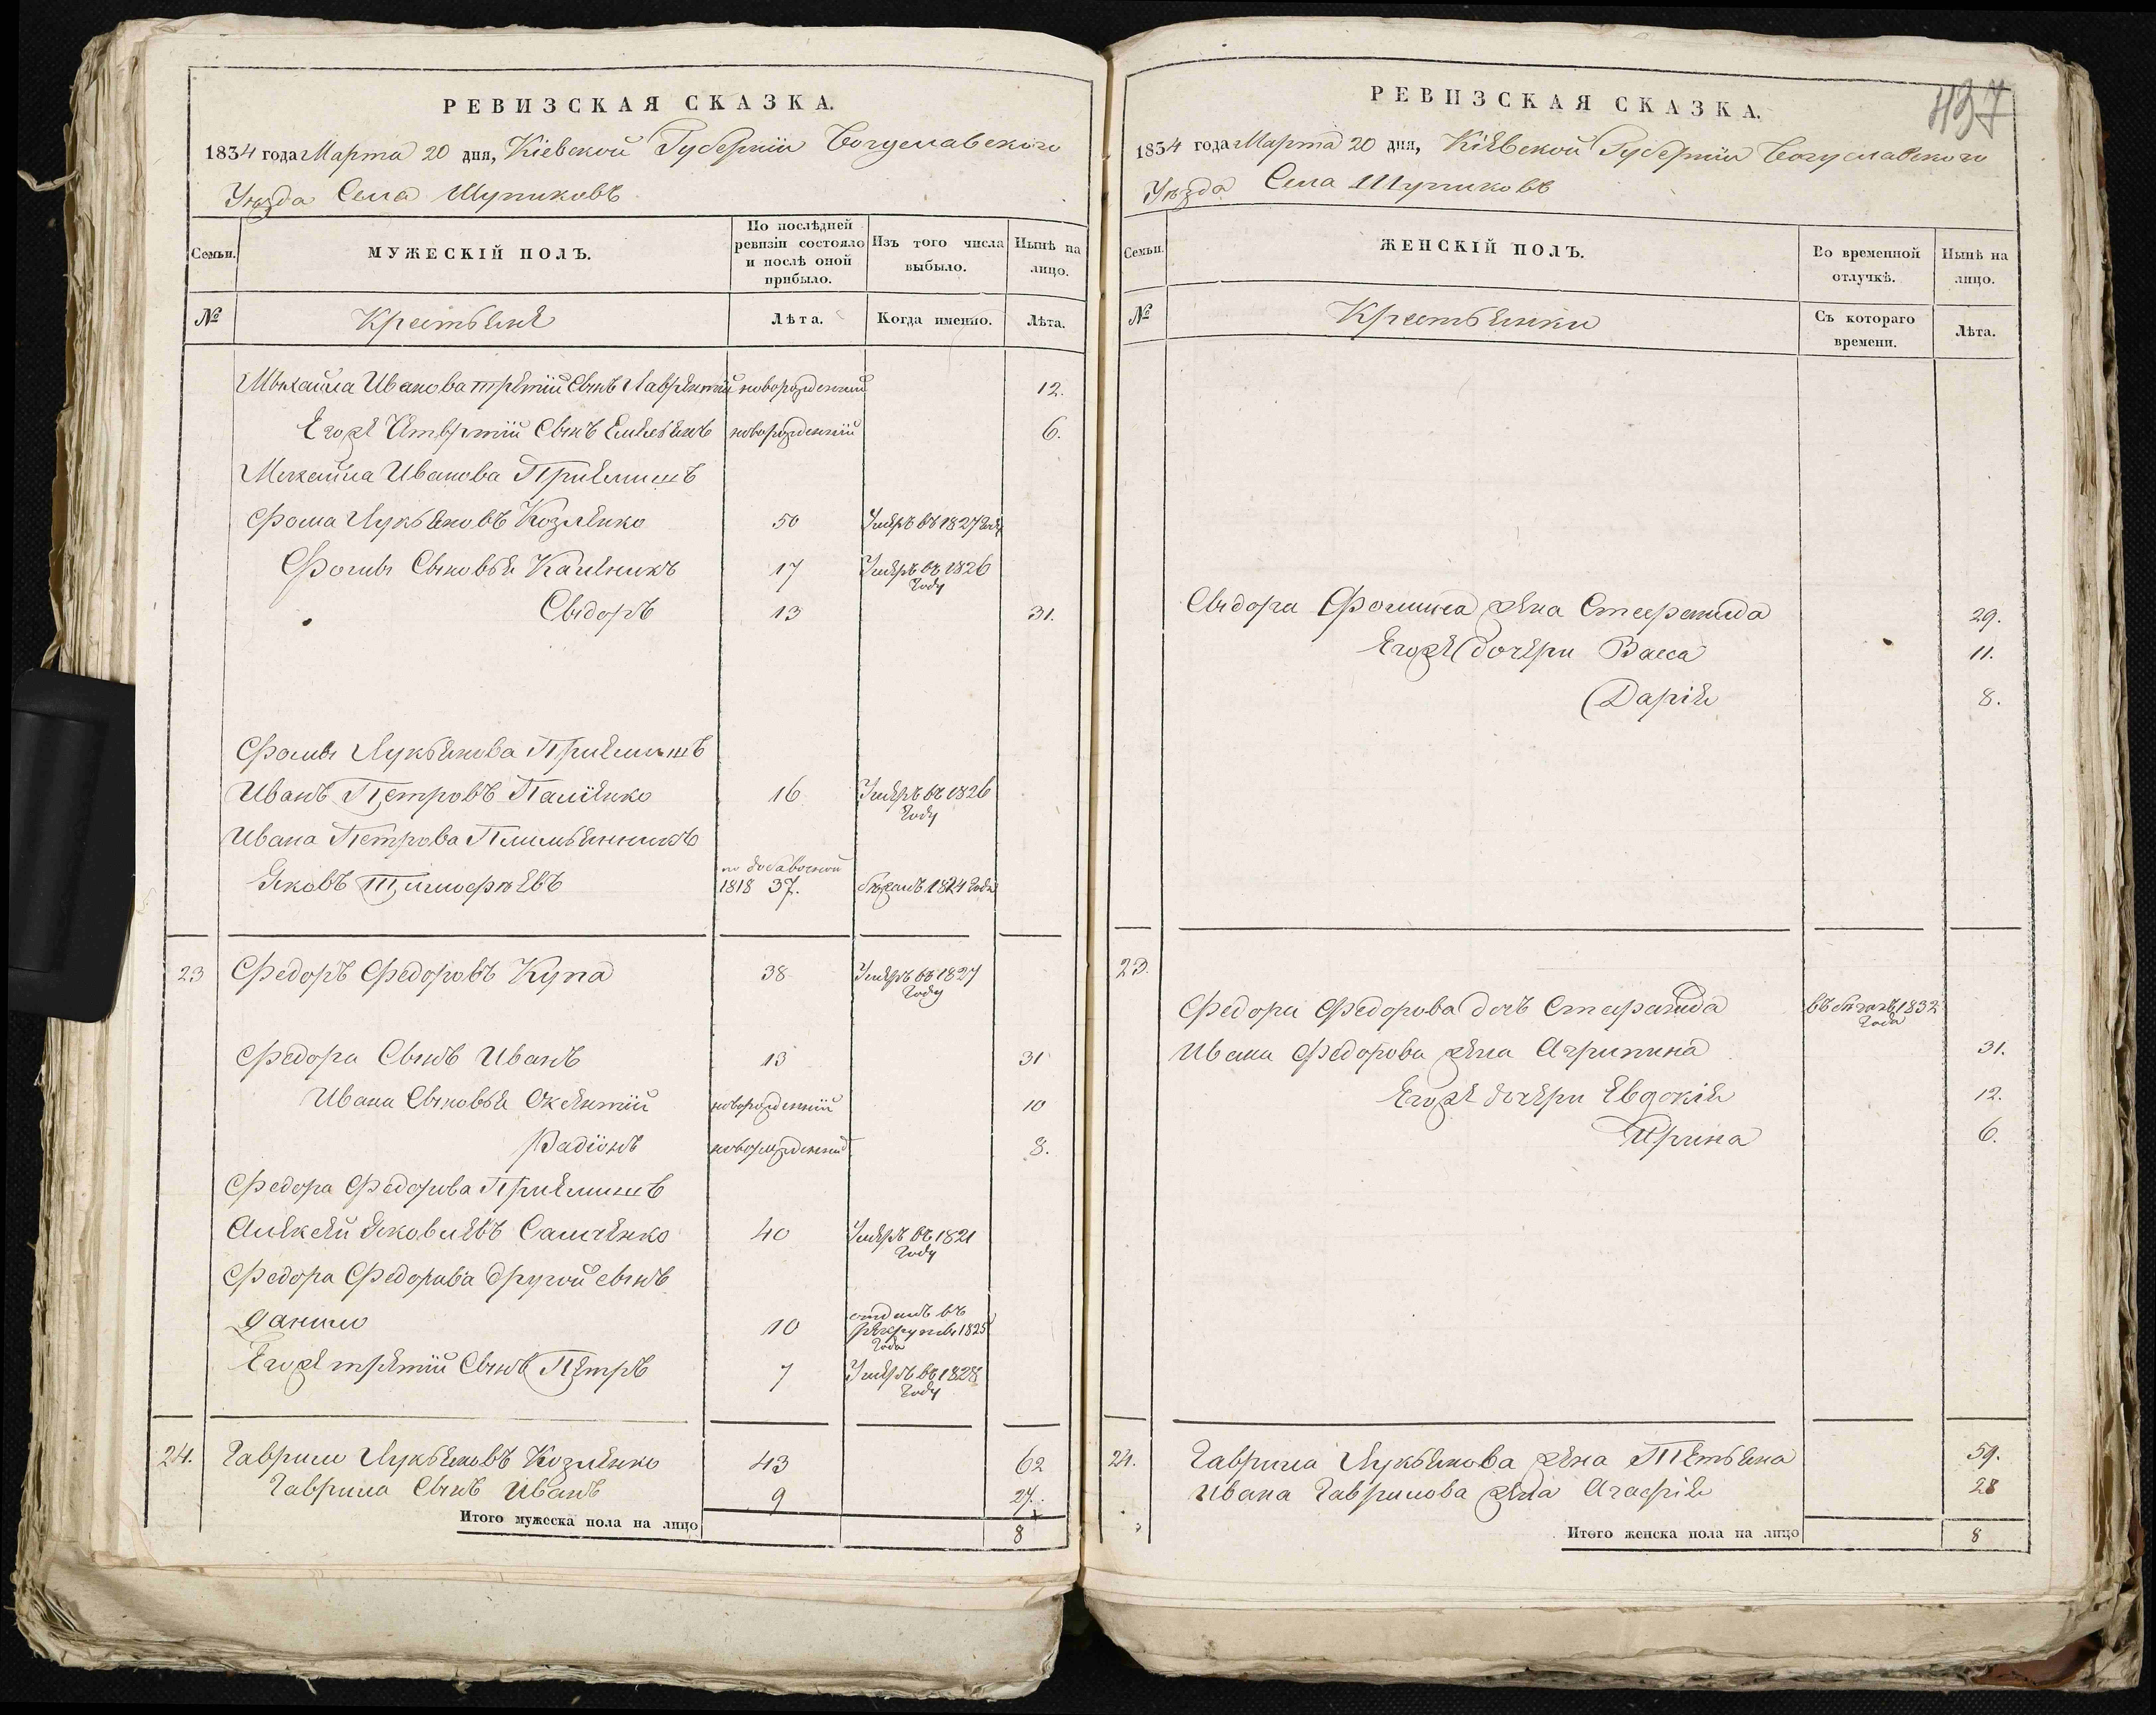 РЕВИЗСКАЯ СКАЗКА.
1834 года Марта 20 дня, Кіевской Губерніи Богуславского
Уѣзда Села Шупиковъ
Семьи.
МУЖЕСКІЙ ПОЛЪ.
По послѣдней ревизіи состояло и послѣ оной прибыло.
Изъ того числа выбыло.
Нынѣ на лицо.
№
Крестьяне
Лѣта.
Когда именно.
Лѣта.
Михайла Иванова третій Сынъ Лаврентій новорожденный 12.
Егоже Четвертій Сынъ Емельянъ новорожденній 6.
Михайла Иванова Приемишъ
Фома Лукьяновъ Козленко 50 Умеръ въ 1827 Году
Фомы Сыновья Каленикъ 17 Умеръ въ 1826
Году
Сидоръ 13 31.
Фомы Лукьянова Приемишъ
Иванъ Петровъ Паліенко 16 Умеръ въ 1826
Году
Ивана Петрова Племьянникъ
по добавочной
Яковъ Тимофѣевъ 1818 37. бежалъ 1824 Года
23 Федоръ Федоровъ Купа 38 Умеръ въ 1827
Году
Федора Сынъ Иванъ 13 31
Ивана Сыновья Оксентій новорожденній 10
Радіонъ новорожденній 8.
Федора Федорова Приемишъ
Алексей Яковлевъ Самченко 40 Умеръ въ 1821
Году
Федора Федорова другой сынъ
Данило 10 отданъ въ
рекруты 1825
Года
Егоже третій Сынъ Петръ 7 Умеръ въ 1828
Году
24. Гаврило Лукьяновъ Козленко 43 62
Гаврила Сынъ Иванъ 9 27.
Итого мужеска пола на лицо 8
437
РЕВИЗСКАЯ СКАЗКА.
1834 года Марта 20 дня, Кіевской Губерніи Богуславского
Уѣзда Села Шупиковъ
Семьи.
ЖЕНСКІЙ ПОЛЪ.
Во временной отлучкѣ.
Нынѣ на лицо.
№
Крестьянки
Съ котораго времени.
Лѣта.
Сидора Фомина жена Стефанида 29.
Егоже дочери Васса 11.
Дарія 8.
23.
Федора Федорова дочъ Стефанида въ бегахъ 1832
Года
Ивана Федорова жена Агрипина 31.
Егоже дочери Евдокія 12.
Ирина 6.
24. Гаврила Лукьянова жена Тетьяна 59.
Ивана Гаврилова жена Агафія 28
Итого женска пола на лицо 8